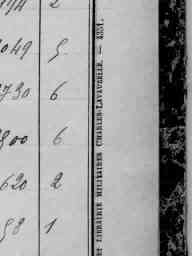 2
049 5
730 6
900 6
620 2
98 1
ET LIBRAIRIE MILITAIRES CHARLES-LAVAUZELLE. — 4331.